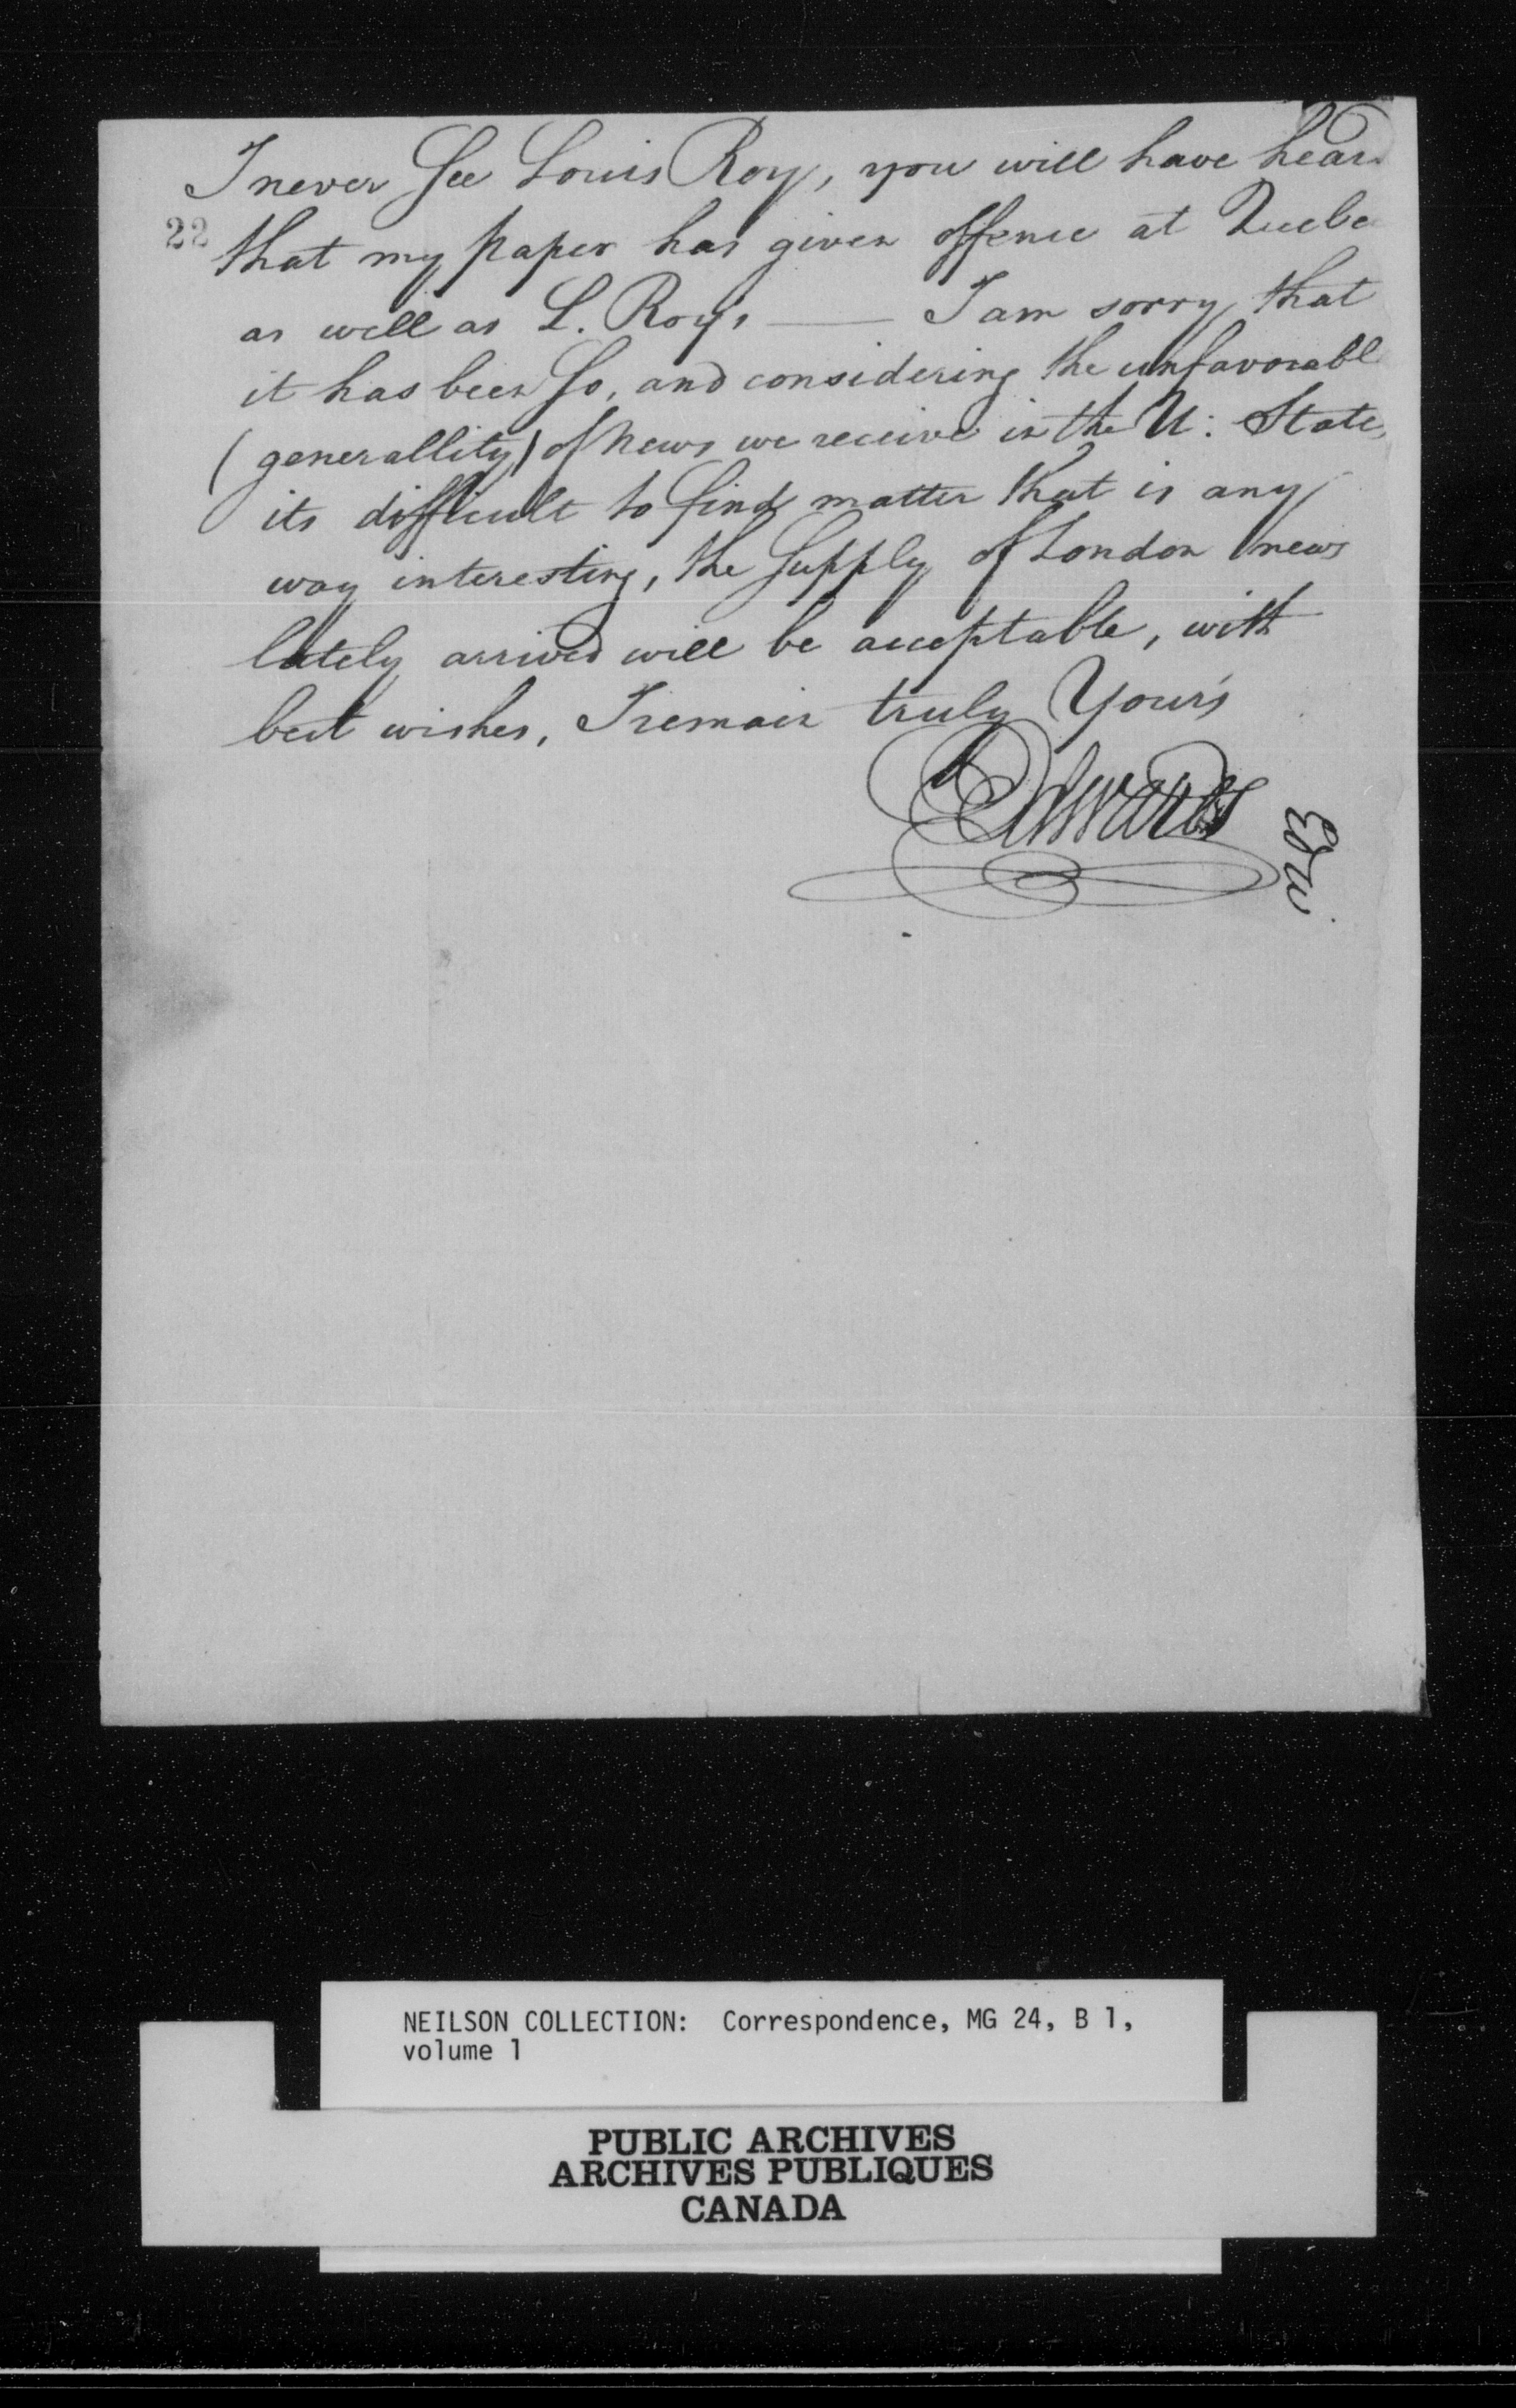 I never See Louis Roy, you will have hear
22
that my paper has given offence at Quebe
as well as L. Roy's —— I am sorry that
it has been So, and considering the unfavorabl
(generallity) of News we receive in the U: State,
its difficult to find matter that is any
way interesting, the Supply of London news
lately arrived will be acceptable, with
best wishes, I remain truly Your's
Edwards
Edw
NEILSON COLLECTION: Correspondence, MG 24, B 1,
volume 1
PUBLIC ARCHIVES
ARCHIVES PUBLIQUES
CANADA